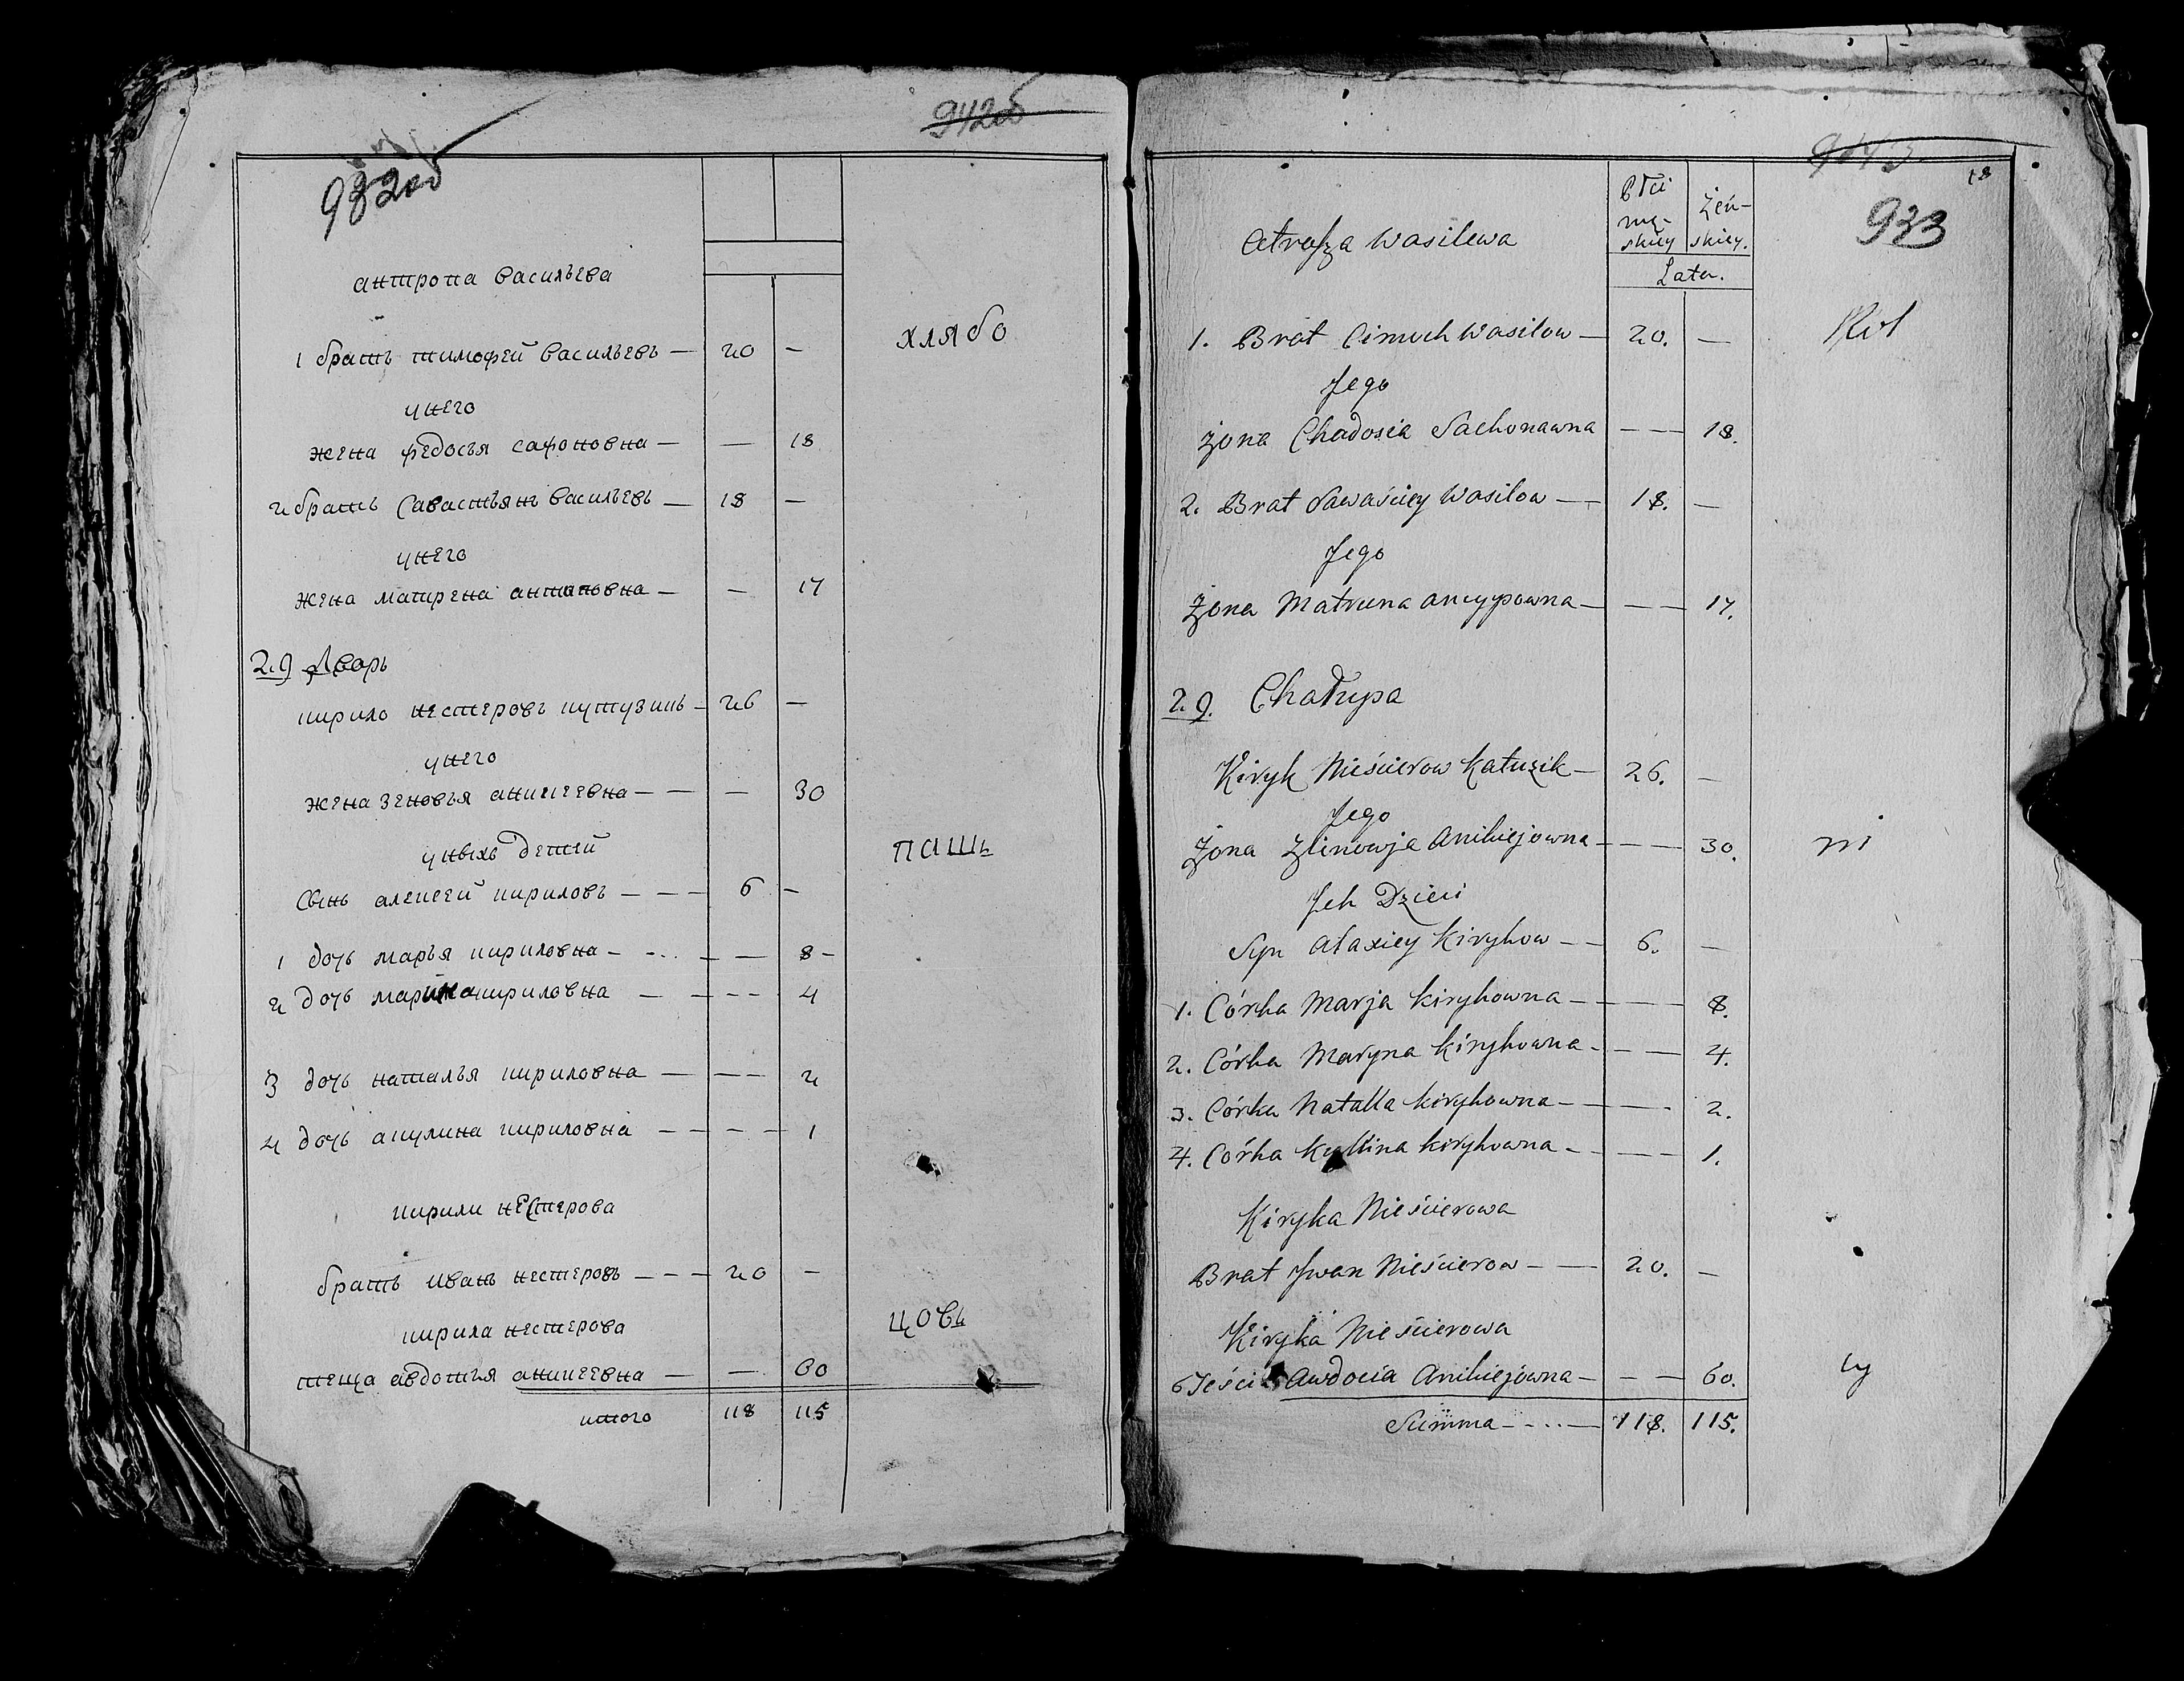 942об
932об
антропа васильева
1 братъ тимофей васильевъ — 20 —
хлябо
унего
жена федосья сафоновна — — 18
2 братъ савастьянъ васильевъ — 18 —
унего
жена матрена антиповна — — 17
29 Дворъ
кирило нестеровъ кутузикъ — 26 —
унего
жена зеновья аникеевна — — — 30
унвхъ детей
пашъ
сынъ алексей кириловъ — — — 6 —
1 дочь марья кириловна — — 8 —
2 дочь марина кириловна — — — — 4
3 дочь наталья кириловна — — — 2
4 дочь акулина кириловна — — — — 1
кирили нестерова
братъ иванъ нестеровъ — — — 20 —
цовъ
кирила нестерова
теща авдотья аникеевна — — 60
итого 118 115
943
18
933
Płci mę-skiey żeń-skiey.
Wasilewa
Lata.
1. Brat Cimoch Wasilow — 20. —
Rol
Jego
Żona Chadosia Sachonawna — — 18.
2. Brat Sawaściey Wasilow — — 18. —
Jego
Żona Matruna Ancypowna — — — 17.
29. Chałupa
Kiryk Nieścierow Katuzik — 26. —
Jego
Żona Zlinowja Anikiejowna — — — 30.
ni
Jch Dzieci
Syn Alaxiey Kirykow — — 6. —
1. Córka Marja Kirykowna — — — 8.
2. Córka Maryna Kirykowna — — — 4.
3. Córka Natalla Kirykowna — — — 2.
4. Córka Kullina Kirykowna — — — 1.
Kiryka Nieścierowa
Brat Jwan Nieścierow — — 20. —
Kiryka Nieścierowa
Awdocia Anikiejowna — — — 60.
cy
Summa — — — 118. 115.